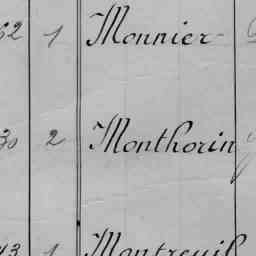 62 1 Monnier
30 2 Monthorin
43 1 Montreuil